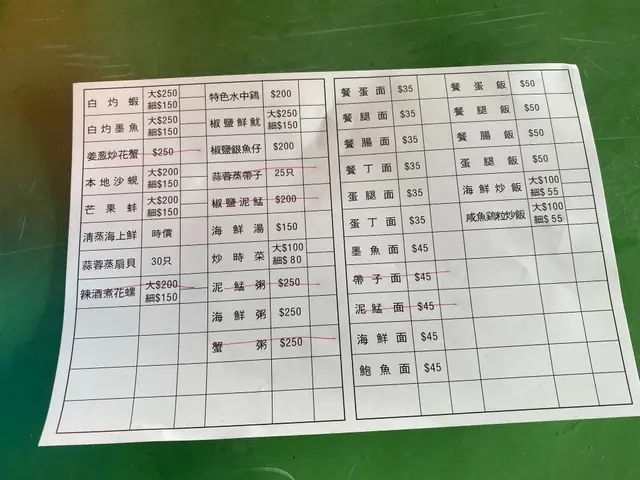 白灼蝦 大$250 細$150
白灼墨魚 大$250 細$150
姜葱炒花蟹 $250
本地沙蜆 大$200 細$150
芒果蚌 大$200 細$150
清蒸海上鮮 時價
蒜蓉蒸扇貝 30只
辣酒煮花螺 大$200 細$150
特色水中鷄 $200
椒鹽鮮魷 大$250 細$150
椒鹽銀魚仔 $200
蒜蓉蒸帶子 25只
椒鹽泥鯭 $200
海鮮湯 $150
炒時菜 大$100 細$80
泥鯭粥 $250
海鮮粥 $250
蟹粥 $250
餐蛋面 $35
餐腿面 $35
餐腸面 $35
餐丁面 $35
蛋腿面 $35
蛋丁面 $35
墨魚面 $45
帶子面 $45
泥鯭面 $45
海鮮面 $45
鮑魚面 $45
餐蛋飯 $50
餐腿飯 $50
餐腸飯 $50
蛋腿飯 $50
海鮮炒飯 大$100 細$55
咸魚鷄粒炒飯 大$100 細$55